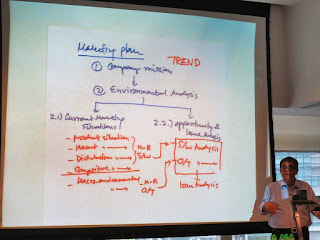 Marketing plan
TREND
① Company mission
② Environmental Analysis
2.1) Current Marketing Situations
2.2.) opportunity & Issue Analysis
- product situation
- Market "
- Distribution "
- Competitive "
- Macroenvironment "
M-R
S/W
M-R
O/T
S/W Analysis
O/T "
Issue Analysis